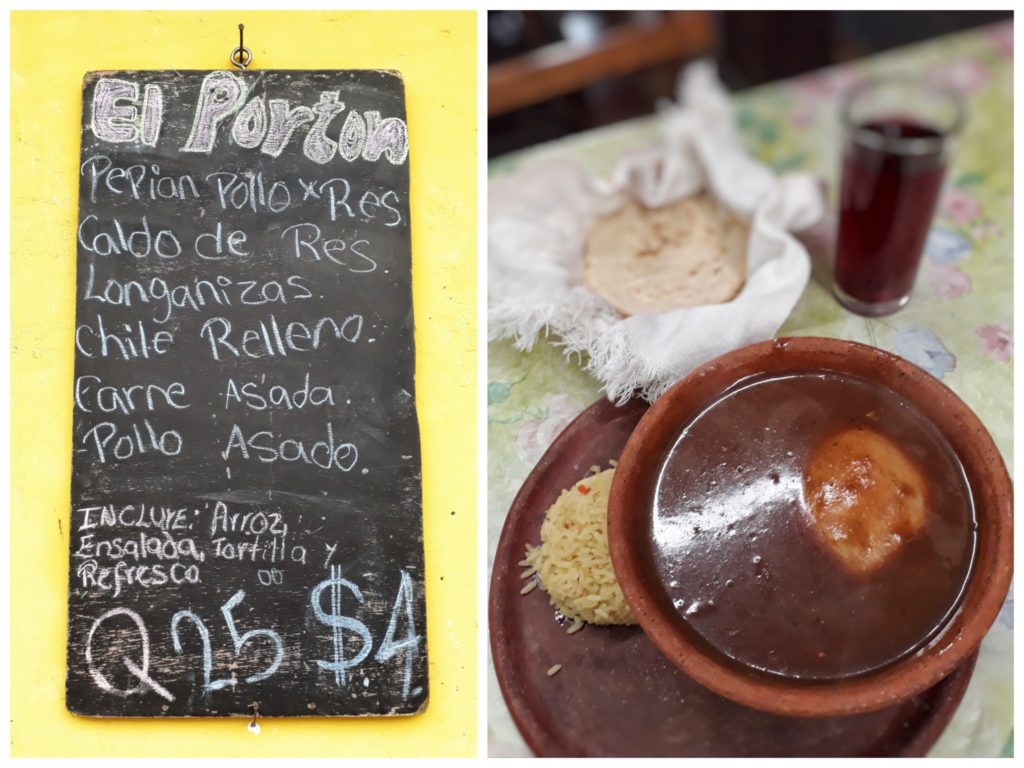 El Porton
Pepian Pollo x Res.
Caldo de Res
Longanizas.
Chile Relleno.
Carne Asada.
Pollo Asado.
INCLUYE: Arroz,
Ensalada, Tortilla y
Refresco
Q 25 00 $4.